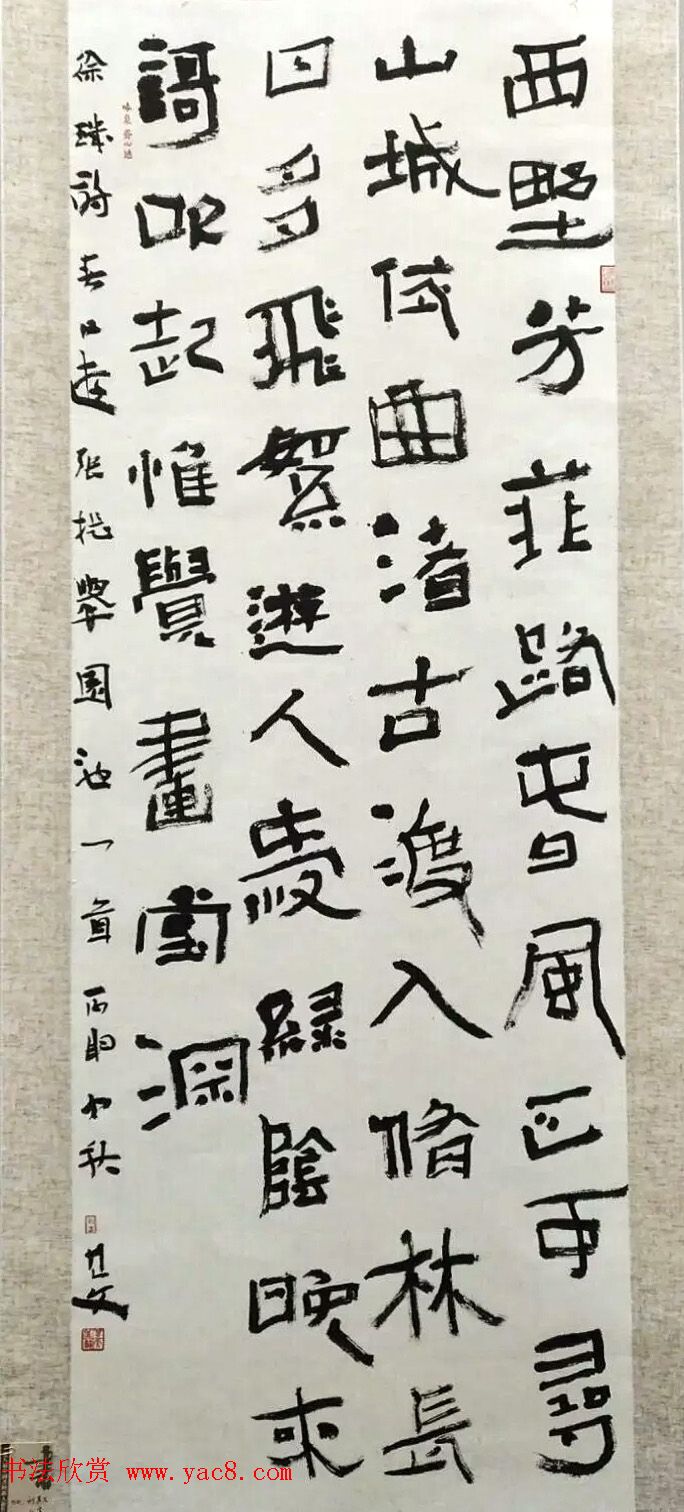 西野芳菲路春風正可尋
山城依曲渚古渡入脩林長
日多飛絮遊人愛綠陰晚來
謌吹起惟覺畫堂深
徐璣詩春日遊張提舉園池一首丙申中秋
书法欣赏 www.yac8.com